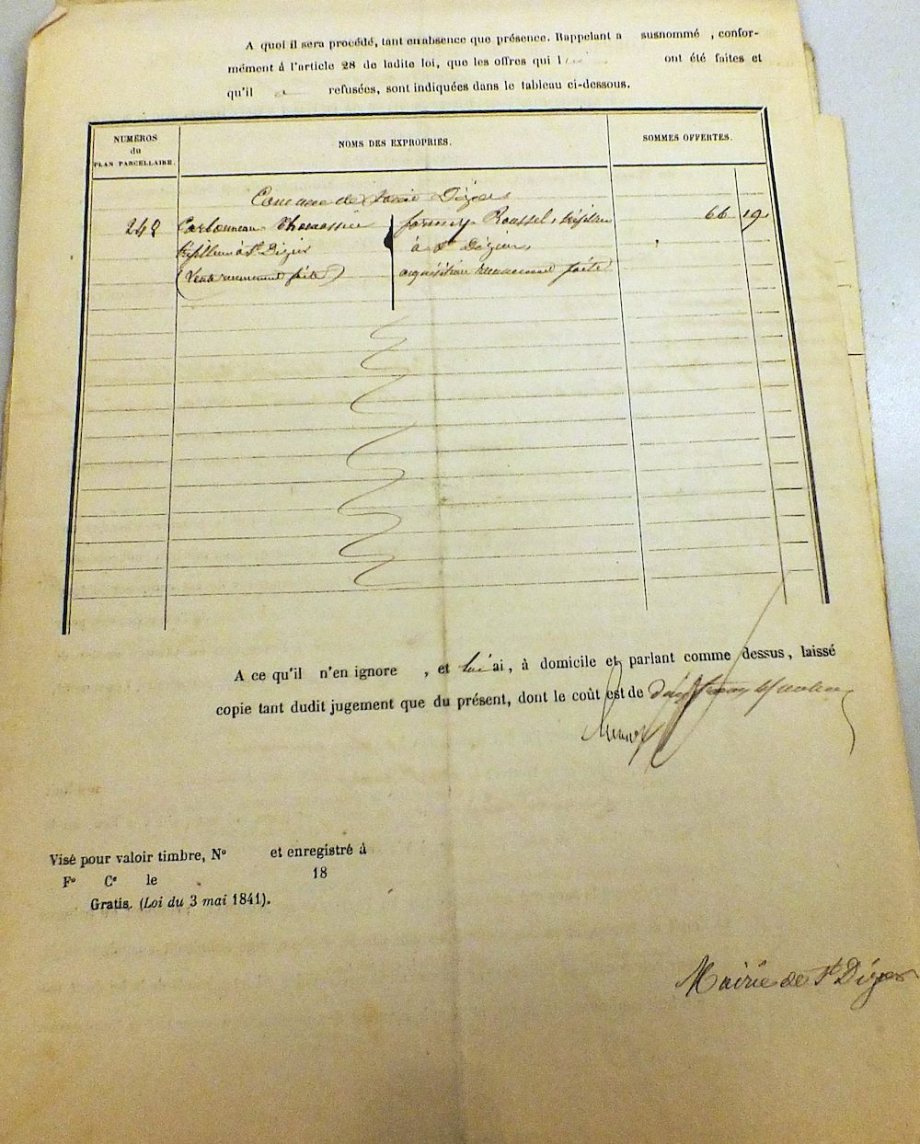 A quoi il sera procédé, tant en absence que présence. Rappelant a susnommé , confor-
mément à l'article 28 de ladite loi, que les offres qui l ont été faites et
qu'il a refusées, sont indiquées dans le tableau ci-dessous.
NUMÉROS
du
PLAN PARCELLAIRE.
NOMS DES EXPROPRIÉS.
SOMMES OFFERTES.
Commune de Saint Dizier
242 Carbonneau Thomassin Roussel, tréfileur 66 19
tréfileur à St Dizier à St Dizier,
(Vente faite) acquisition faite
A ce qu'il n'en ignore , et lui ai, à domicile et parlant comme dessus, laissé
copie tant dudit jugement que du présent, dont le coût est de
Visé pour valoir timbre, N° et enregistré à
F° C° le 18
Gratis. (Loi du 3 mai 1841).
Mairie de St Dizier